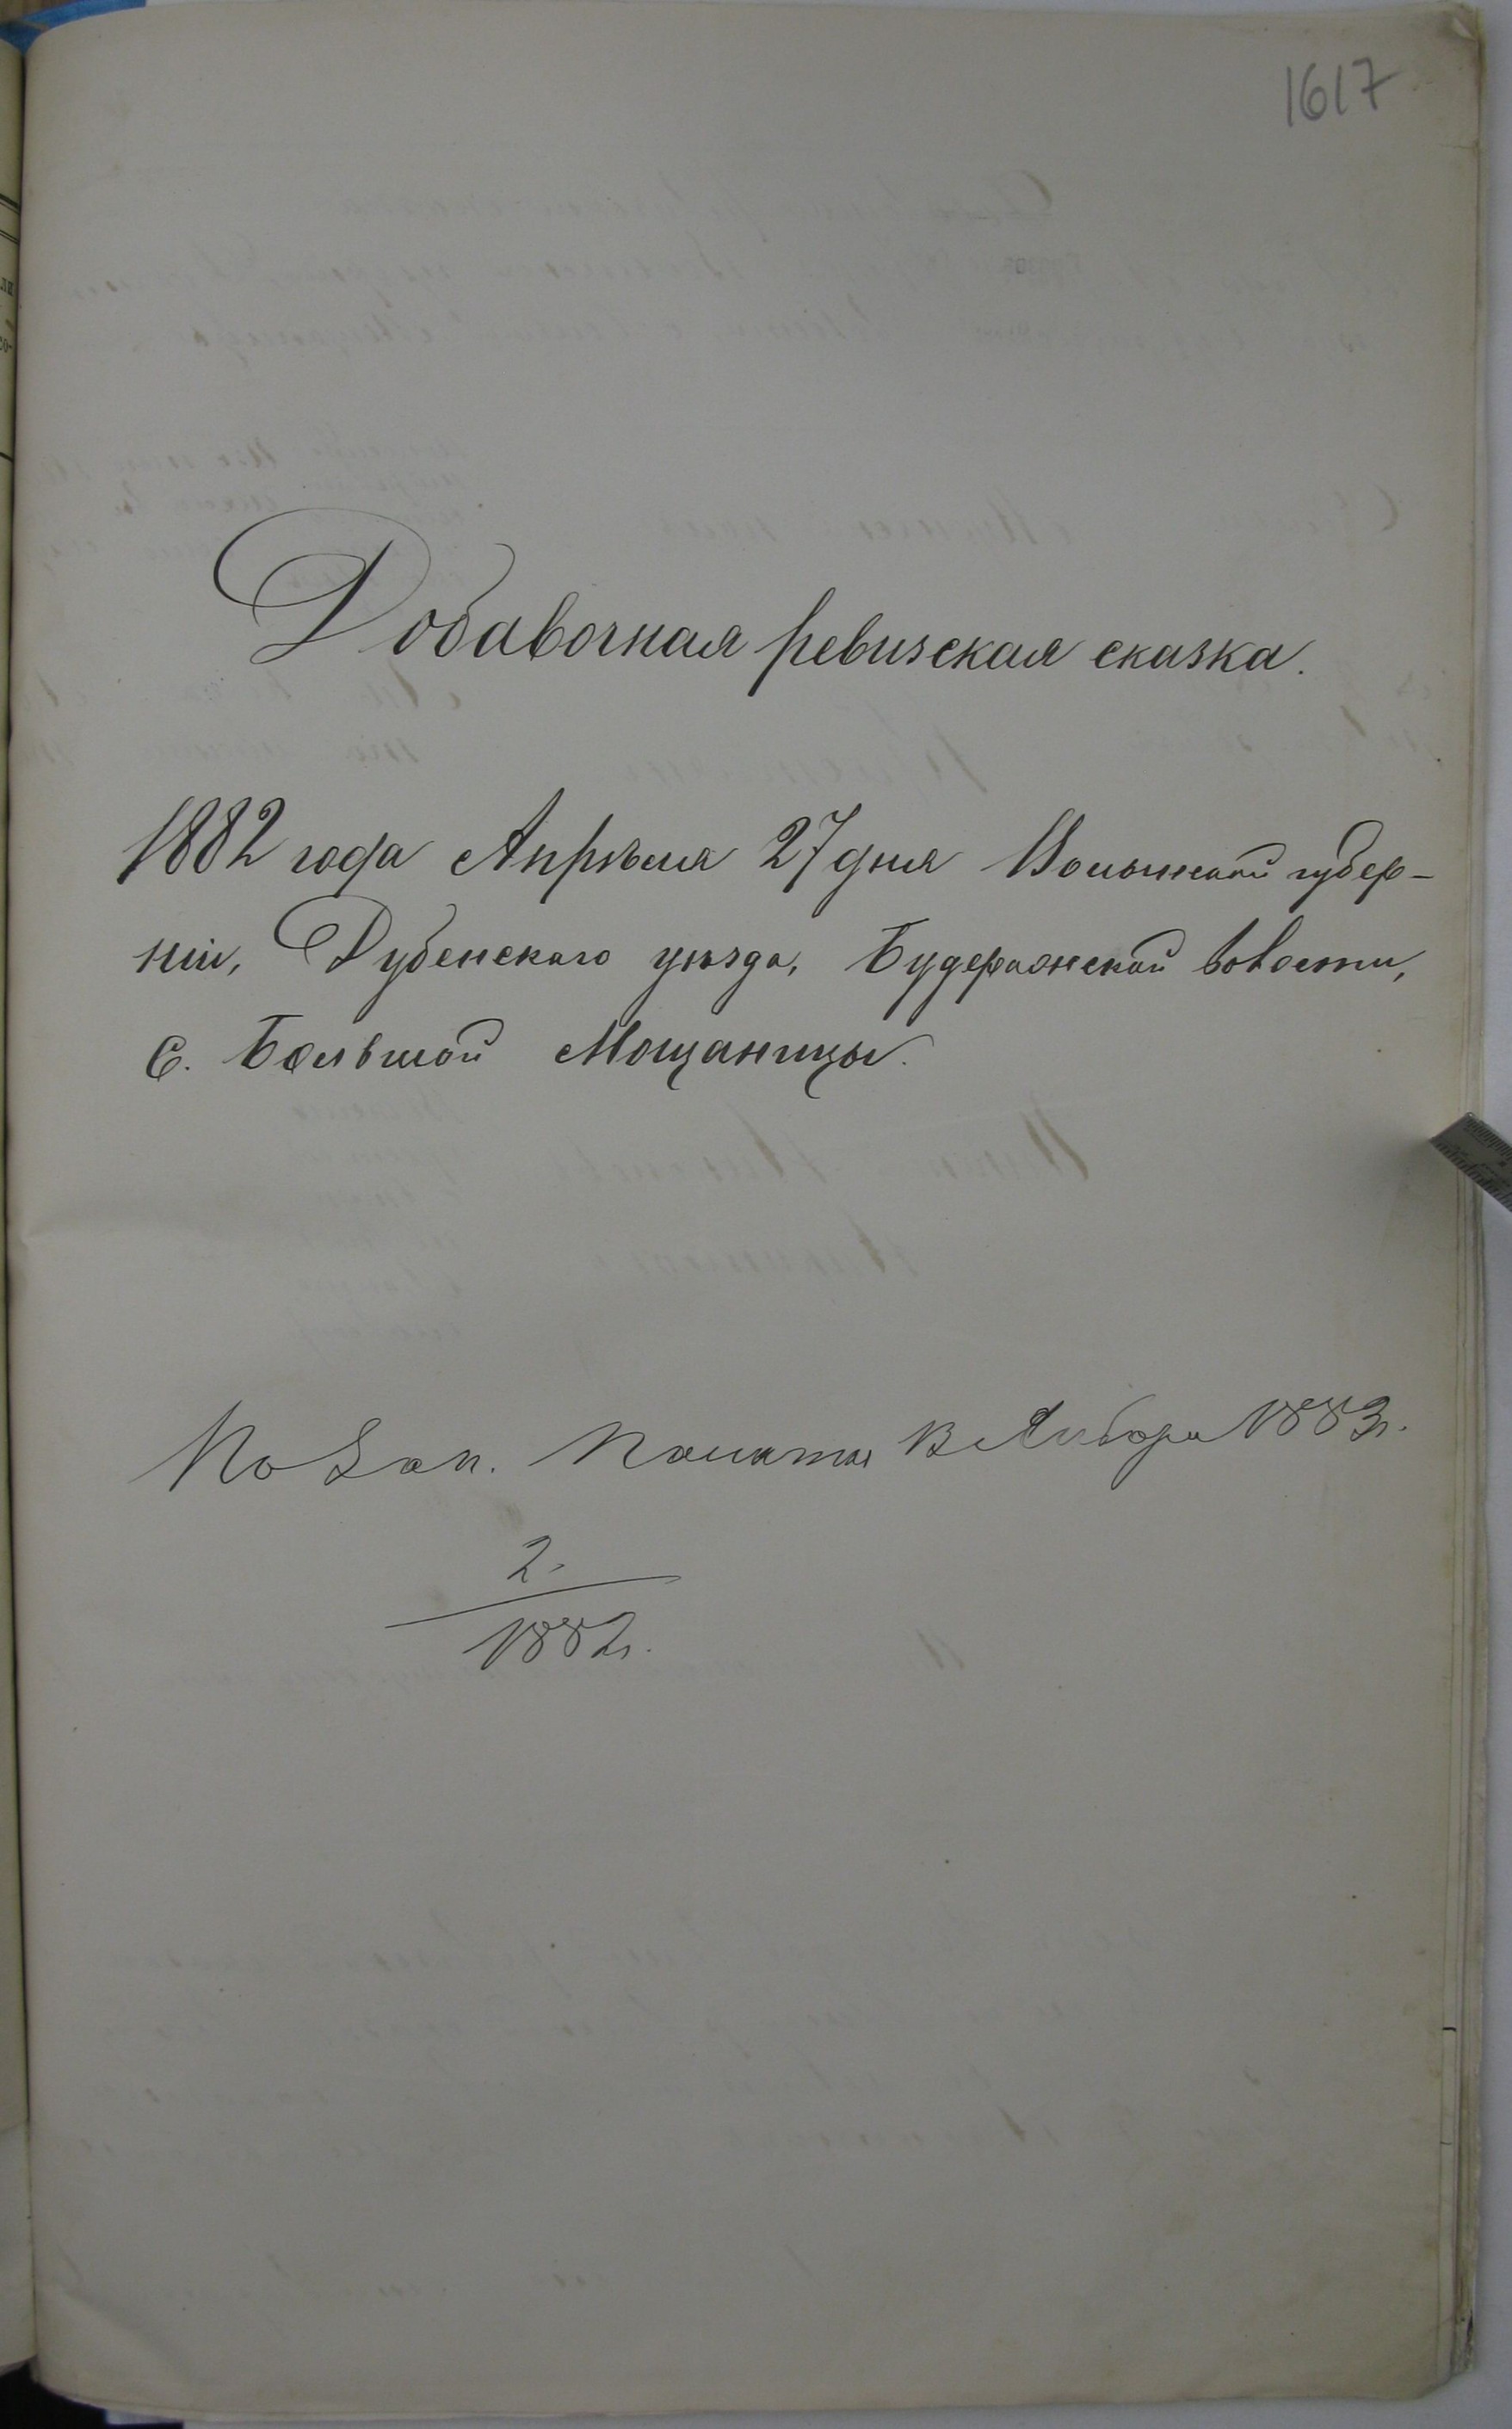 1617
Добавочная ревизская сказка.
1882 года Апрѣля 27 дня Волынской губер-
ніи, Дубенскаго уѣзда, Будеражской волости,
С. Большой Мощаницы.
По Зап. Палаты 13 Января 1883 г.
2.
1882 г.